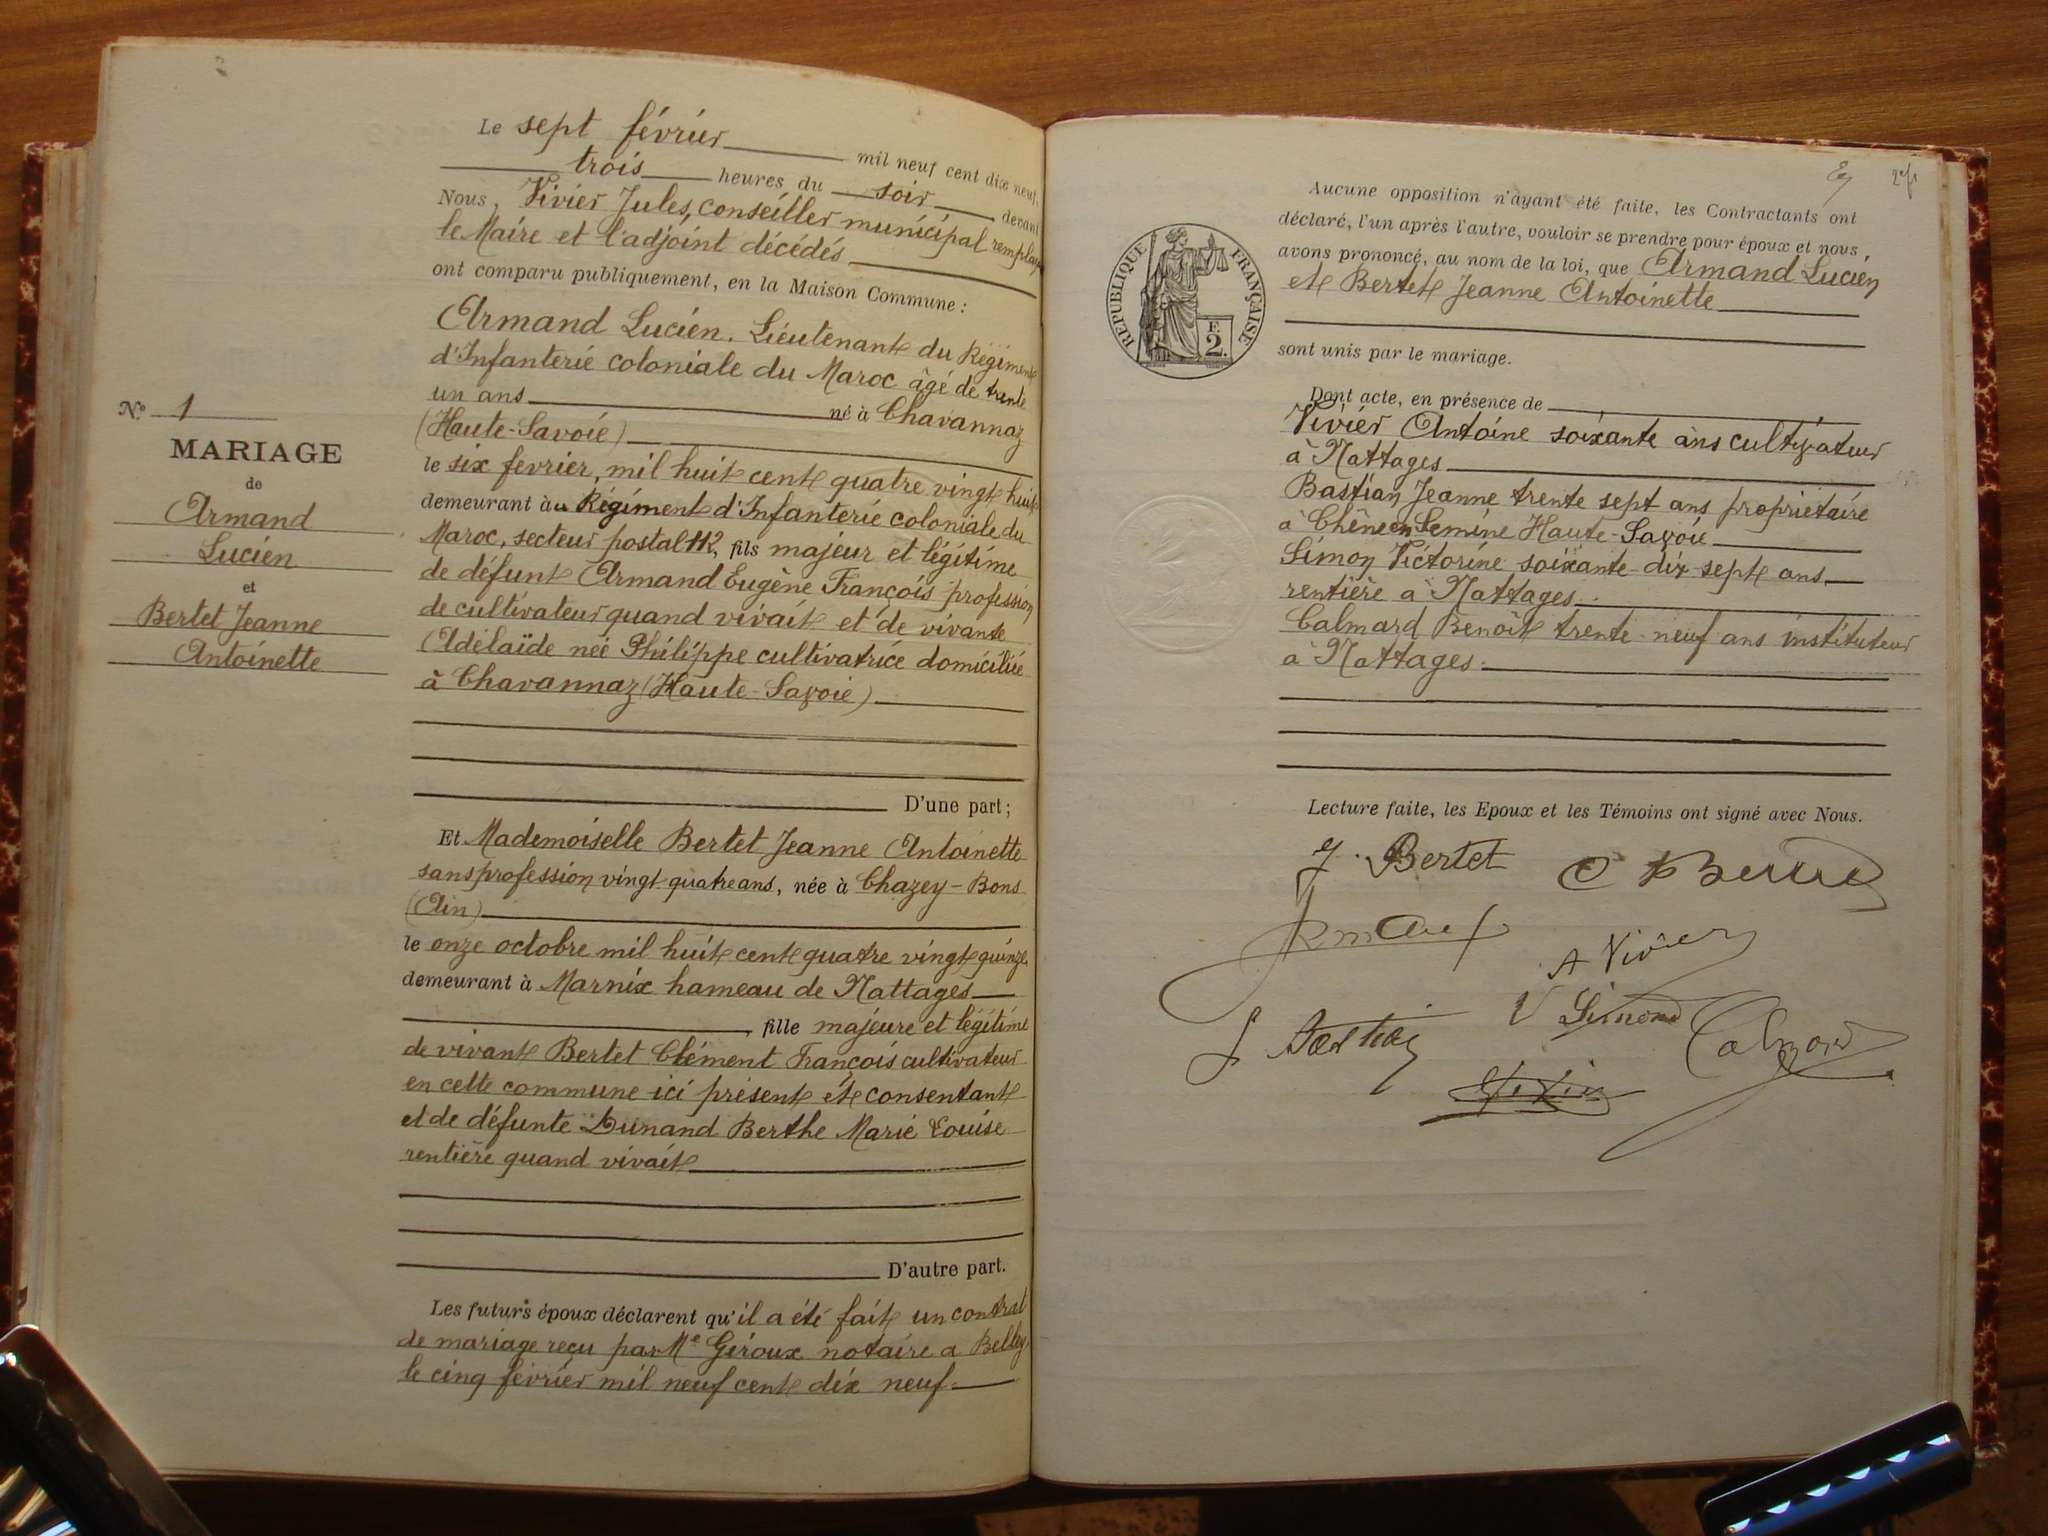 Le sept février mil neuf cent dix neuf,
trois heures du soir devant
Nous, Vivier Jules, conseiller municipal remplaç
le Maire et l'adjoint décédés
ont comparu publiquement, en la Maison Commune :
Armand Lucien. Lieutenant du Régiment
d'Infanterie coloniale du Maroc âgé de trente
un ans né à Chavannaz
(Haute-Savoie)
le six fevrier, mil huit cent quatre vingt huit
demeurant au Régiment d'Infanterie coloniale du
Maroc, secteur postal 112, fils majeur et légitime
de défunt Armand Eugène François profession
de cultivateur quand vivait et de vivante
Adélaïde née Philippe cultivatrice domiciliée
à Chavannaz (Haute-Savoie)
D'une part ;
Et Mademoiselle Bertet Jeanne Antoinette
sans profession vingt quatre ans, née à Chazey-Bons
(Ain)
le onze octobre mil huit cent quatre vingt quinze
demeurant à Marnix hameau de Nattages
fille majeure et légitime
de vivant Bertet Clément François cultivateur
en cette commune ici présent et consentant
et de défunte Dunand Berthe Marie Louise
rentière quand vivait
D'autre part.
Les futurs époux déclarent qu'il a été fait un contrat
de mariage reçu par Me Giroux notaire a Belley,
le cinq février mil neuf cent dix neuf.
No 1
MARIAGE
de
Armand
Lucien
et
Bertet Jeanne
Antoinette
2e/1
REPUBLIQUE FRANÇAISE
F.
2.
Aucune opposition n'ayant été faite, les Contractants ont
déclaré, l'un après l'autre, vouloir se prendre pour époux et nous
avons prononcé, au nom de la loi, que Armand Lucien
et Bertet Jeanne Antoinette
sont unis par le mariage.
Dont acte, en présence de
Vivier Antoine soixante ans cultivateur
à Nattages
Bastian Jeanne trente sept ans propriétaire
à Chêne en Semine Haute-Savoie
Simon Victorine soixante-dix-sept ans
rentière à Nattages.
Calmard Benoît trente-neuf ans instituteur
à Nattages.
Lecture faite, les Epoux et les Témoins ont signé avec Nous.
J. Bertet
A Vivier
V Simond
J Bastian
Calmard